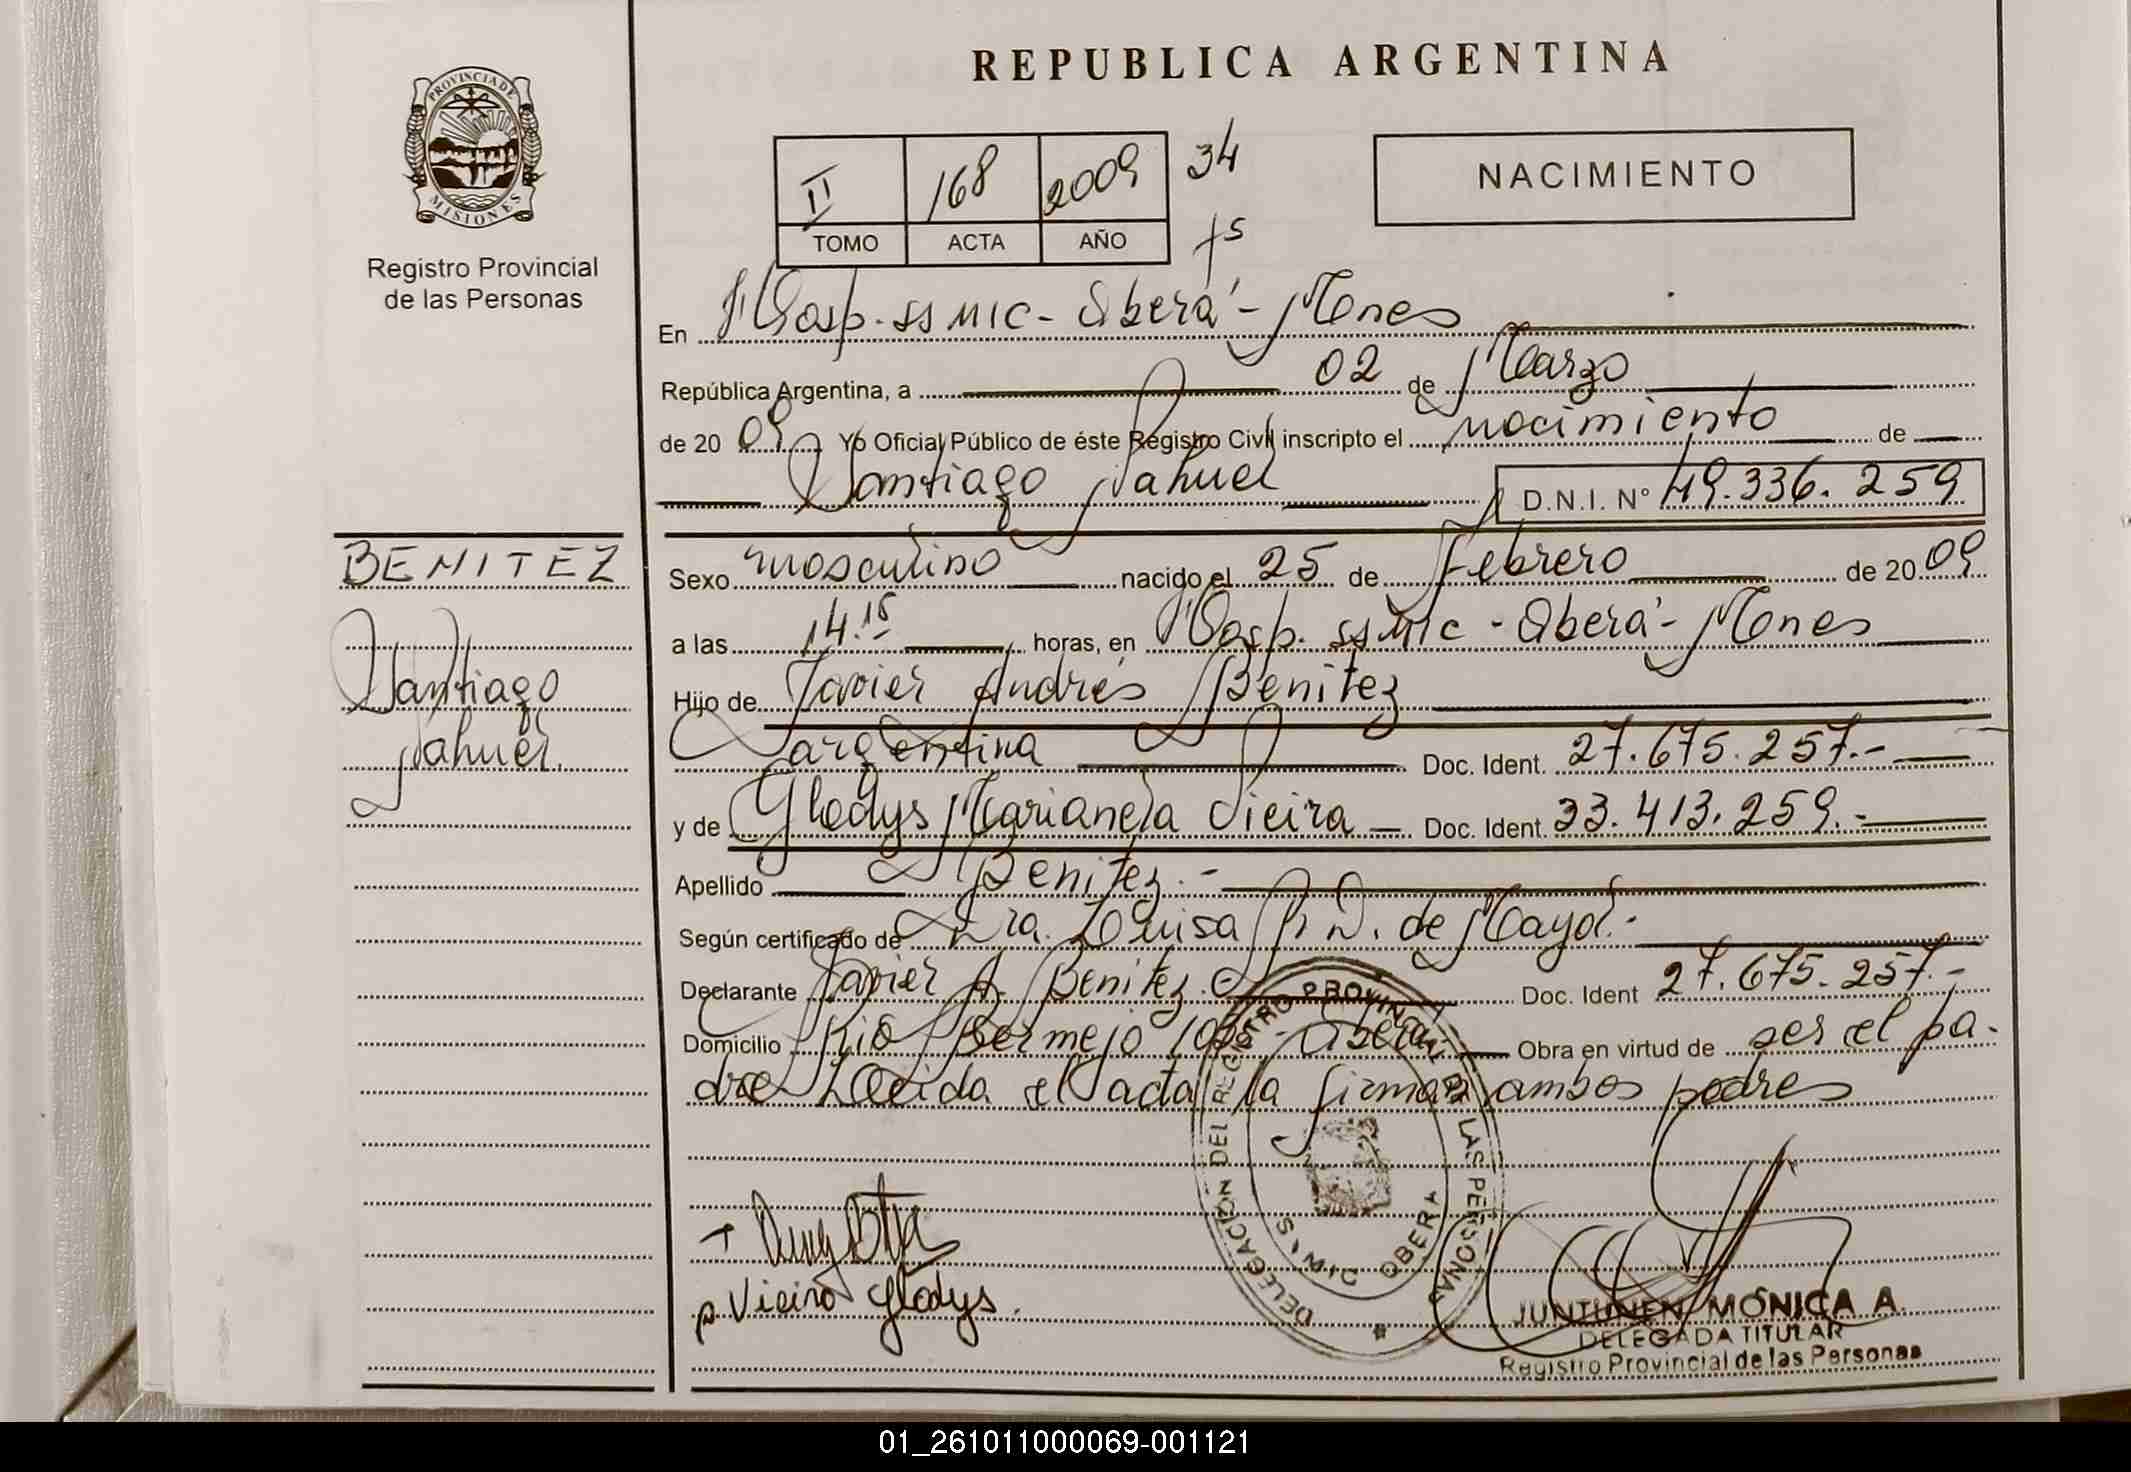 REPUBLICA ARGENTINA
PROVINCIA DE MISIONES
Registro Provincial
de las Personas
II 168 2009 34
TOMO ACTA AÑO fs
NACIMIENTO
En Hosp. SSMIC - Oberá - Mnes
República Argentina, a 02 de Marzo
de 2009 Yo Oficial Público de éste Registro Civil inscripto el nacimiento de
Santiago Nahuel D.N.I. Nº 49.336.259
BENITEZ
Santiago
Nahuel.
Sexo masculino nacido el 25 de Febrero de 2009
a las 14.15 horas, en Hosp. SSMIC - Oberá - Mnes
Hijo de Javier Andrés Benitez
argentina Doc. Ident. 27.675.257.-
y de Gladys Marianela Vieira Doc. Ident. 33.413.259.-
Apellido Benitez.-
Según certificado de Dra. Luisa R. D. de Mayol.-
Declarante Javier A. Benitez Doc. Ident 27.675.257.-
Domicilio Rio Bermejo - Oberá Obra en virtud de ser el pa-
dre Leida el acta la firman ambos padres
DELEGACION DEL REGISTRO PROVINCIAL DE LAS PERSONAS
OBERA
Vieira Gladys.
JUNTUNEN MÓNICA A.
DELEGADA TITULAR
Registro Provincial de las Personas
01_261011000069-001121